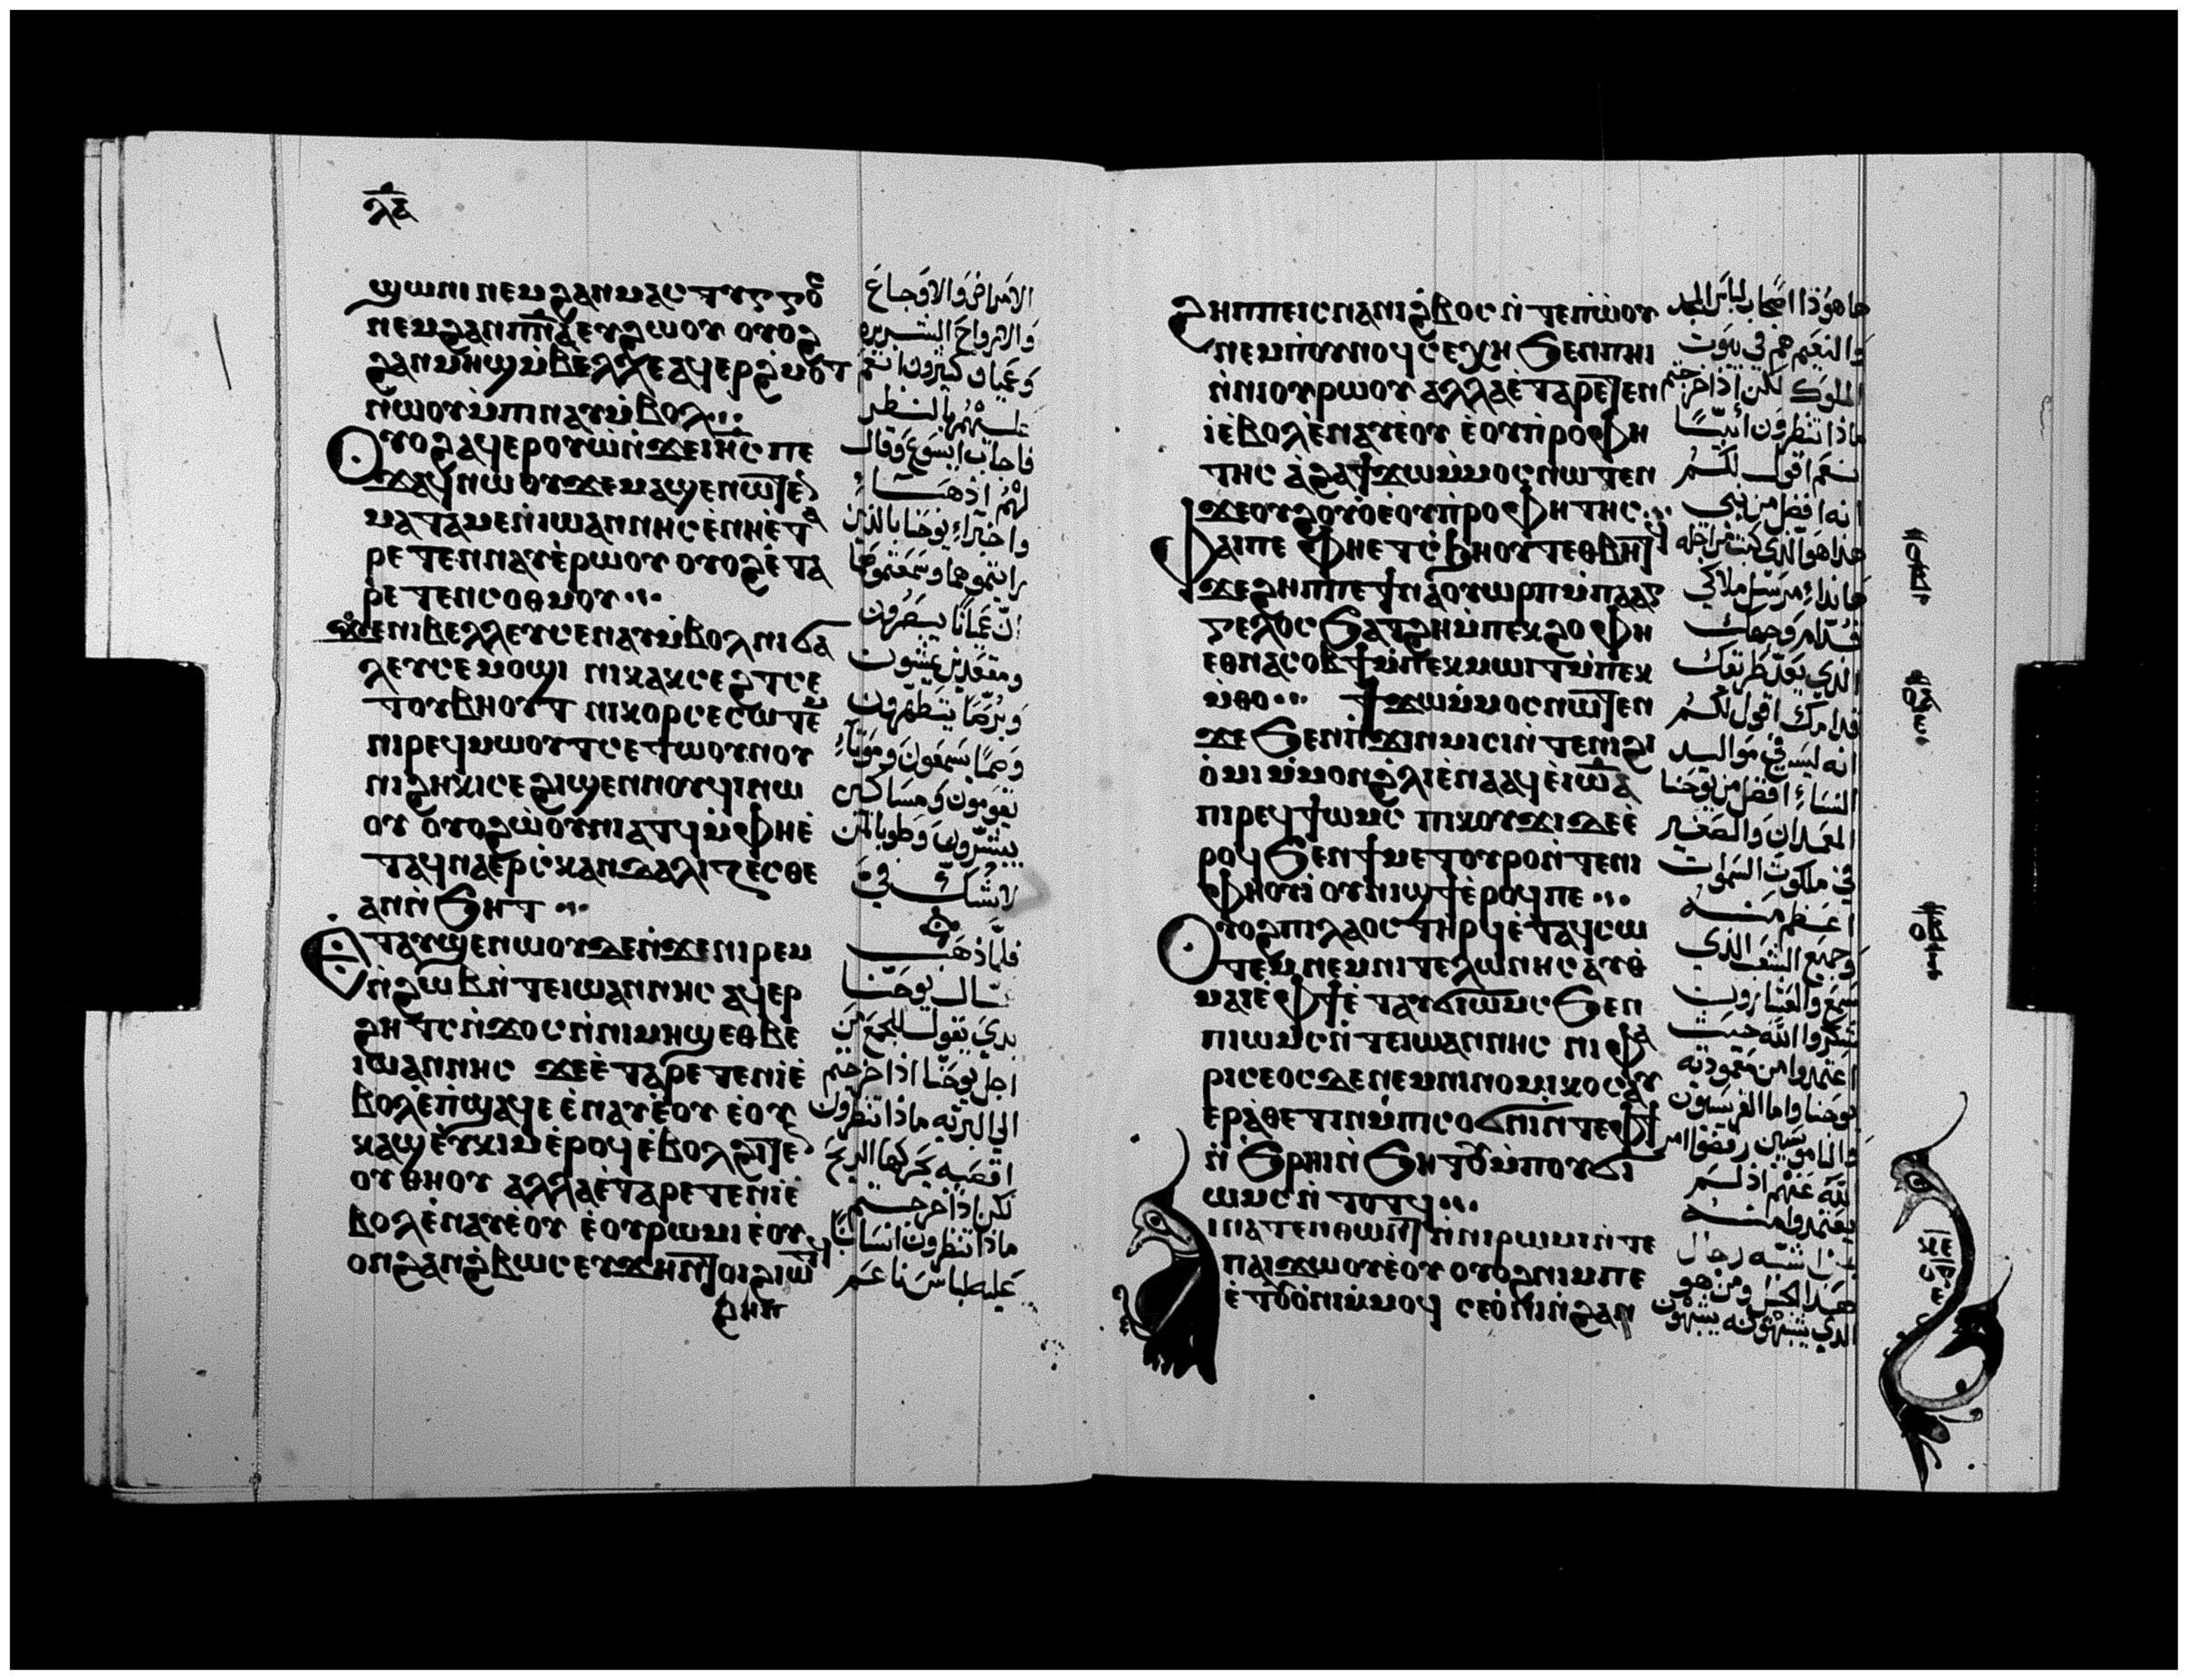 ϣⲱⲛⲓ ⲛⲉⲙ ϩⲁⲛⲙⲁⲥⲧⲩⲅⲅⲟⲥ
ⲛⲉⲙ ϩⲁⲛⲡⲛ̅ⲁ̅ ⲉⲩϩⲱⲟⲩ ⲟⲩⲟϩ
ϩⲁⲛⲙⲏϣ ⲙ̀ⲃⲉⲗⲗⲉ ⲁϥⲉⲣϩ̀ⲙⲟⲧ
ⲛ̀ⲱⲟⲩ ⲙ̀ⲡⲛⲁⲩ ⲙ̀ⲃⲟⲗ
ⲟⲩⲟϩ ⲁϥⲉⲣⲟⲩⲱ̀ ⲛ̀ϫⲉ ⲓⲏ̅ⲥ̅ ⲡⲉ
ϫⲁϥ ⲛⲱⲟⲩ ϫⲉ ⲙⲁϣⲉⲛⲱⲧⲉⲛ
ⲙⲁⲧⲁⲙⲉ ⲓⲱⲁⲛⲛⲏⲥ ⲉ̀ⲛⲏⲉ̀ⲧⲁ
ⲣⲉⲧⲉⲛⲛⲁⲩ ⲉ̀ⲣⲱⲟⲩ ⲟⲩⲟϩ ⲉ̀ⲧⲁ
ⲣⲉⲧⲉⲛⲥⲟⲑⲙⲟⲩ
ϫⲉ ⲛⲓⲃⲉⲗⲗⲉⲩ ⲥⲉⲛⲁⲩ ⲙ̀ⲃⲟⲗ ⲛⲓϭⲁ
ⲗⲉⲩ ⲥⲉⲙⲟϣⲓ ⲛⲓⲕⲁⲕⲥⲉϩⲧ ⲥⲉ
ⲧⲟⲩⲃⲏⲟⲩⲧ ⲛⲓⲕⲟⲩⲣ ⲥⲉⲥⲱⲧⲉⲙ
ⲛⲓⲣⲉϥⲙⲱⲟⲩⲧ ⲥⲉⲧⲱⲟⲩⲛⲟⲩ
ⲛⲓϩⲏⲕⲓ ⲥⲉϩⲓϣⲉⲛⲛⲟⲩϥⲓ ⲛⲱ
ⲟⲩ ⲟⲩⲟϩ ⲱ̀ⲟⲩⲛⲓⲁⲧϥ ⲙ̀ⲫⲏⲉ̀
ⲧⲁϥⲛⲁⲉⲣⲥⲕⲁⲛⲇⲁⲗⲓⲍⲉⲥⲑⲉ
ⲁⲛ ⲛ̀ϧⲏⲧ
ⲉⲧⲁⲩϣⲉⲛⲱⲟⲩ ⲇⲉ ⲛ̀ϫⲉ ⲛⲓⲣⲉⲙ
ⲛ̀ϩⲱⲃ ⲛ̀ⲧⲉ ⲓⲱⲁⲛⲛⲏⲥ ⲁϥⲉⲣ
ϩⲏⲧⲥ ⲛ̀ϫⲟⲥ ⲛ̀ⲛⲓⲙⲏϣ ⲉⲑⲃⲉ
ⲓⲱⲁⲛⲛⲏⲥ ϫⲉ ⲉ̀ⲧⲁⲣⲉⲧⲉⲛⲓ̀ ⲉ̀
ⲃⲟⲗ ⲉ̀ⲡ̀ϣⲁϥⲉ ⲉ̀ⲛⲁⲩ ⲉ̀ⲟⲩ ⲉ̀ⲟⲩ
ⲕⲁϣ ⲉ̀ϥⲕⲓⲙ ⲉ̀ⲣⲟϥ ⲉ̀ⲃⲟⲗϩⲓⲧⲉⲛ
ⲟⲩⲑⲏⲟⲩ ⲁⲗⲗⲁ ⲉ̀ⲧⲁⲣⲉⲧⲉⲛⲓ̀ ⲉ̀
ⲃⲟⲗ ⲉ̀ⲛⲁⲩ ⲉ̀ⲟⲩ ⲉ̀ⲟⲩⲣⲱⲙⲓ ⲉ̀ⲟⲩ
ⲟⲛ ϩⲁⲛϩ̀ⲃⲱⲥ ⲉⲩϫⲏⲛ ⲧⲟⲓ ϩⲓⲱⲧϥ
ϩⲏⲡ
الامراض والاوجاع
والارواح الشريره
وعميان كثيرون انعم
عليهم بالنظر
فاجاب ايسوع وقال
لهم اذهبا
واخبراء يوحنا بالذين
رايتموهما وسمعتموهما
ان عميانا يبصرون
ومقعدين يمشون
وبرصا يتطهرون
وصما يسمعون وموتاء
يقومون ومساكين
يبشرون وطوبا لمن
لا يشك في
فلما ذهب
بدى يقول للجمع من
اجل يوحنا اذا خرجتم
الى البريه ماذا تنظرون
اقصبه يحركها الريح
لكن اذا خرجتم
ماذا تنظرون انسانا
عليه لباس ناعم
ϩⲏⲡⲡⲉ ⲓⲥ ⲛⲁⲛⲓϩ̀ⲃⲟⲥ ⲛ̀ⲧⲉ ⲡⲱ̀ⲟⲩ
ⲛⲉⲙ ⲡ̀ⲟⲩⲛⲟϥ ⲥⲉⲭⲏ ϧⲉⲛ ⲛⲏⲓ
ⲛ̀ⲛⲓⲟⲩⲣⲱⲟⲩ ⲁⲗⲗⲁ ⲉ̀ⲧⲁⲣⲉⲧⲉⲛ
ⲓ̀ ⲉ̀ⲃⲟⲗ ⲉ̀ⲛⲁⲩ ⲉ̀ⲟⲩ ⲉ̀ⲟⲩⲡ̀ⲣⲟⲫⲏ
ⲧⲏⲥ ⲁ̀ϩⲁ ϯϫⲱ ⲙ̀ⲙⲟⲥ ⲛⲱⲧⲉⲛ
ϫⲉ ⲟⲩϩⲟⲩⲟ̀ ⲉ̀ⲟⲩⲡ̀ⲣⲟⲫⲏⲧⲏⲥ
ⲫⲁⲓ ⲡⲉ ⲫⲏⲉⲧⲥ̀ϧⲏⲟⲩⲧ ⲉⲑⲃⲏⲧϥ
ϫⲉ ϩⲏⲡⲡⲉ ϯⲛⲁⲟⲩⲱⲣⲡ ⲙ̀ⲡⲁⲁⲅ
ⲅⲉⲗⲟⲥ ϧⲁⲧϩⲏ ⲙ̀ⲡⲉⲕϩⲟ ⲫⲏ
ⲉⲑⲛⲁⲥⲟⲃϯ ⲙ̀ⲡⲉⲕⲙⲱⲓⲧ ⲙ̀ⲡⲉⲕ
ⲙ̀ⲑⲟ ϯϫⲱ ⲙ̀ⲙⲟⲥ ⲛⲱⲧⲉⲛ
ϫⲉ ϧⲉⲛ ⲛ̀ϫⲓⲛⲙⲓⲥⲓ ⲛ̀ⲧⲉ ⲛⲓϩⲓ
ⲟ̀ⲙⲓ ⲙ̀ⲙⲟⲛ ϩ̀ⲗⲓ ⲉ̀ⲛⲁⲁϥ ⲉ̀ⲓⲱⲁ
ⲡⲓⲣⲉϥϯⲱⲙⲥ ⲡⲓⲕⲟⲩϫⲓ ⲇⲉ ⲉ̀
ⲣⲟϥ ϧⲉⲛ ϯⲙⲉⲧⲟⲩⲣⲟ ⲛ̀ⲧⲉ ⲛⲓ
ⲫⲏⲟⲩⲓ̀ ⲟⲩⲛⲓϣϯ ⲉ̀ⲣⲟϥ ⲡⲉ
ⲟⲩⲟϩ ⲡⲓⲗⲁⲟⲥ ⲧⲏⲣϥ ⲉ̀ⲧⲁϥⲥⲱ
ⲧⲉⲙ ⲛⲉⲙ ⲛⲓⲧⲉⲗⲱⲛⲏⲥ ⲁⲩⲑ
ⲙⲁⲓⲉ̀ ⲫϯ ⲉ̀ⲧⲁⲩϭⲓⲱⲙⲥ ϧⲉⲛ
ⲡⲓⲱⲙⲥ ⲛ̀ⲧⲉ ⲓⲱⲁⲛⲛⲏⲥ ⲛⲓⲫⲁ
ⲣⲓⲥⲉⲟⲥ ⲇⲉ ⲛⲉⲙ ⲛⲓⲛⲟⲙⲓⲕⲟⲥ ⲁⲩ
ⲉⲣⲁ̀ⲑⲉⲧⲓⲛ ⲙ̀ⲡⲥⲟϭⲛⲓ ⲛ̀ⲧⲉ ⲫϯ
ⲛ̀ϧⲣⲏⲓ ⲛ̀ϧⲏⲧⲟⲩ ⲙ̀ⲡⲟⲩϭⲓ
ⲱⲙⲥ ⲛ̀ⲧⲟⲧϥ
ⲓⲛⲁⲧⲉⲛⲑⲱⲛ ⲛ̀ⲛⲓⲣⲱⲙⲓ ⲛ̀ⲧⲉ
ⲡⲁⲓϫⲱⲟⲩ ⲉ̀ⲟⲩ ⲟⲩⲟϩ ⲛⲓⲙ ⲡⲉ
ⲉ̀ⲧⲟⲩⲟ̀ⲛⲓ ⲙ̀ⲙⲟϥ ⲥⲉⲟ̀ⲛⲓ ⲛ̀ϩⲁⲛ
ها هوذا اصحاب لباس المجد
والنعيم هم في بيوت
الملوك لكن اذا خرجتم
ماذا تنظرون أنبيًا
نعم اقول لكم
انه افضل من نبي
هذا هو الذي كتب من اجله
هانداء مرسل ملاكي
قدام وجهك
الذي يعد طريقك
قدامك اقول لكم
انه ليس في مواليد
النساء افضل من يوحنا
المعمدان والصغير
في ملكوت السموات
اعظم منه
وجميع الشعب الذي
سمع والعشارون
شكروا الله حيث
اعتمدوا من معموديه
يوحنا واما الفريسيون
والناموسيين رفضوا امر
الله عنهم اذ لم
يعتمدوا منه
اشبه رجال
هذا الجيل ومن هو
الذي يشبهونه يشبهون